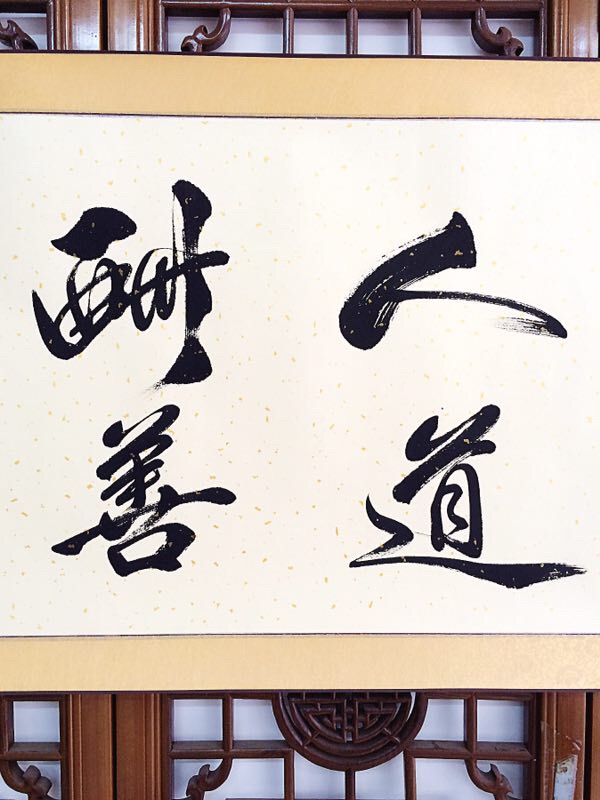 人道
酬善